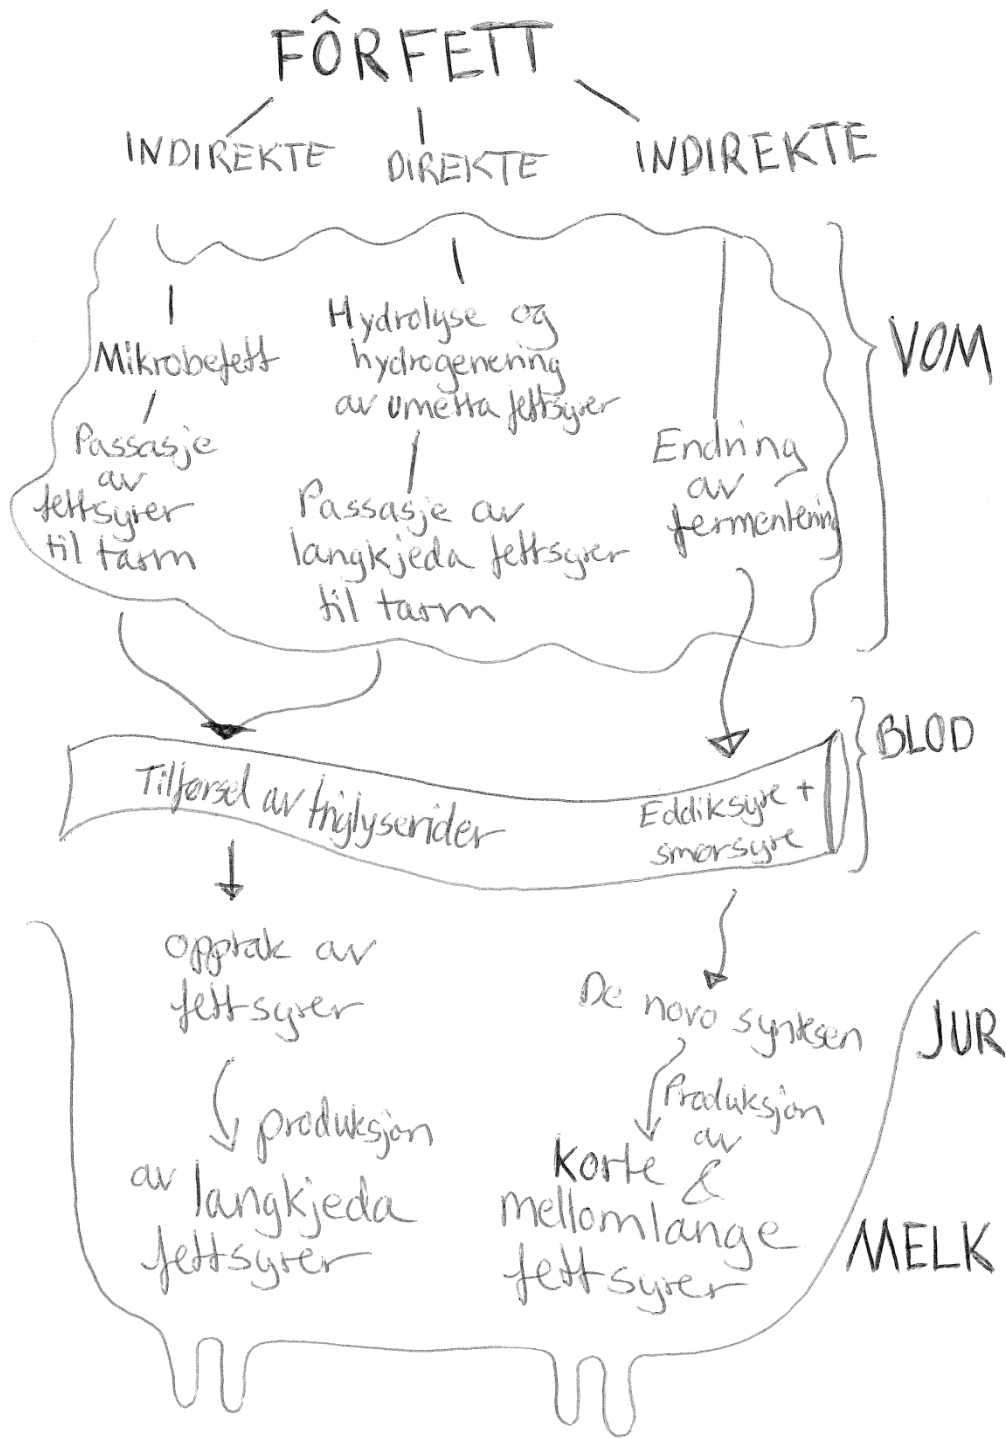 FÔRFETT
INDIREKTE
DIREKTE
INDIREKTE
Mikrobefett
Passasje
av
fettsyrer
til tarm
Hydrolyse og
hydrogenering
av umetta fettsyrer
Passasje av
langkjeda fettsyrer
til tarm
Endring
av
fermentering
VOM
Tilførsel av triglyserider
Eddiksyre +
smørsyre
BLOD
opptak av
fettsyrer
produksjon
av langkjeda
fettsyrer
De novo syntesen
Produksjon
av
korte &
mellomlange
fettsyrer
JUR
MELK